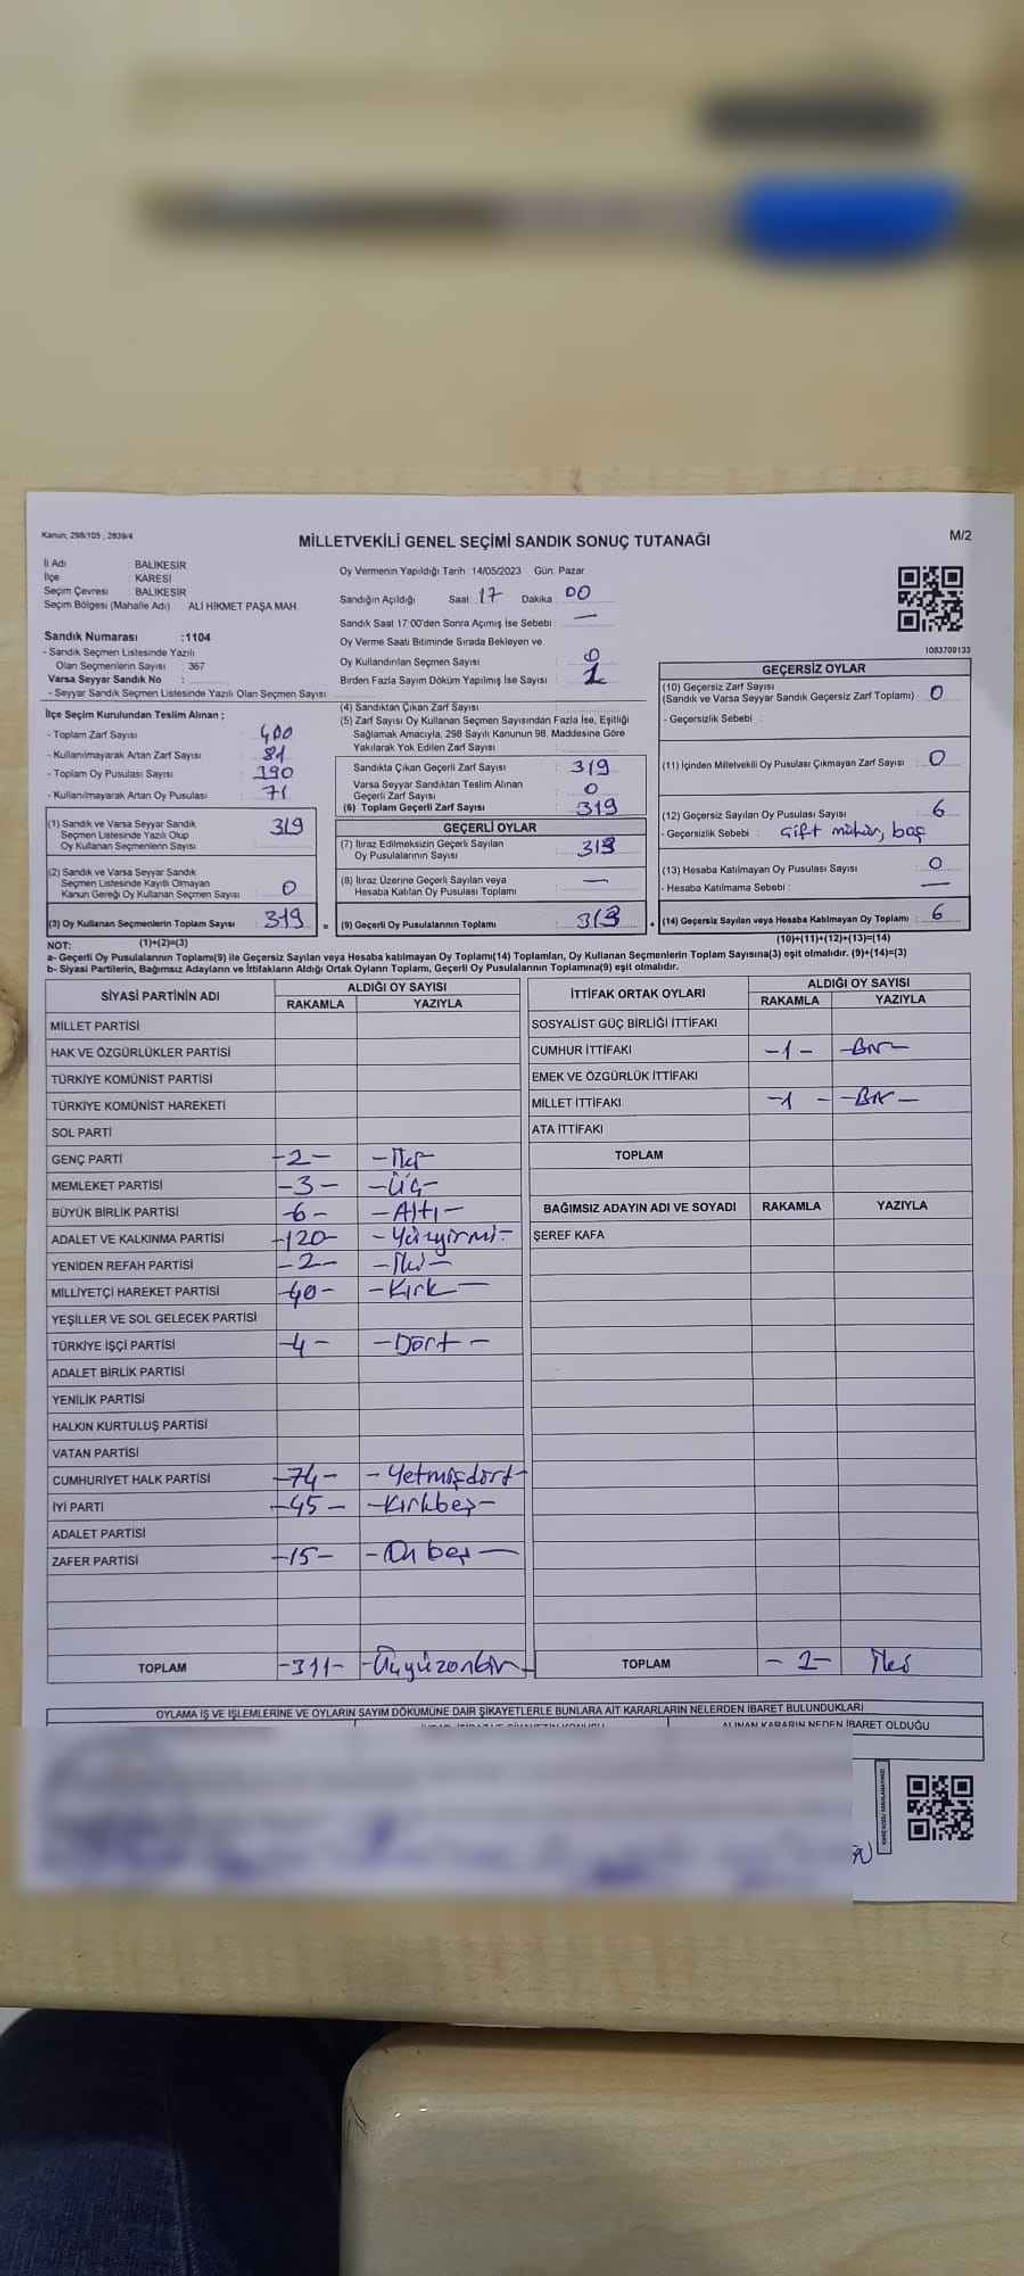 Kanun; 298/105 , 2839/4
MİLLETVEKİLİ GENEL SEÇİMİ SANDIK SONUÇ TUTANAĞI
M/2
İl Adı : BALIKESİR
İlçe : KARESİ
Seçim Çevresi : BALIKESİR
Seçim Bölgesi (Mahalle Adı) : ALİ HİKMET PAŞA MAH.
Sandık Numarası :1104
- Sandık Seçmen Listesinde Yazılı
Olan Seçmenlerin Sayısı : 367
Varsa Seyyar Sandık No :
- Seyyar Sandık Seçmen Listesinde Yazılı Olan Seçmen Sayısı :
Oy Vermenin Yapıldığı Tarih :14/05/2023 Gün: Pazar
Sandığın Açıldığı Saat 17 Dakika 00
Sandık Saat 17:00'den Sonra Açımış İse Sebebi : —
Oy Verme Saati Bitiminde Sırada Bekleyen ve
Oy Kullandırılan Seçmen Sayısı : 0
Birden Fazla Sayım Döküm Yapılmış İse Sayısı : 1
1083709133
İlçe Seçim Kurulundan Teslim Alınan ;
- Toplam Zarf Sayısı : 400
- Kullanılmayarak Artan Zarf Sayısı : 81
- Toplam Oy Pusulası Sayısı : 390
- Kullanılmayarak Artan Oy Pusulası : 71
(1) Sandık ve Varsa Seyyar Sandık
Seçmen Listesinde Yazılı Olup
Oy Kullanan Seçmenlerin Sayısı : 319
(2) Sandık ve Varsa Seyyar Sandık
Seçmen Listesinde Kayıtlı Olmayan
Kanun Gereği Oy Kullanan Seçmen Sayısı : 0
(3) Oy Kullanan Seçmenlerin Toplam Sayısı : 319
(4) Sandıktan Çıkan Zarf Sayısı :
(5) Zarf Sayısı Oy Kullanan Seçmen Sayısından Fazla İse, Eşitliği
Sağlamak Amacıyla, 298 Sayılı Kanunun 98. Maddesine Göre
Yakılarak Yok Edilen Zarf Sayısı :
Sandıkta Çıkan Geçerli Zarf Sayısı : 319
Varsa Seyyar Sandıktan Teslim Alınan
Geçerli Zarf Sayısı : 0
(6) Toplam Geçerli Zarf Sayısı : 319
GEÇERLİ OYLAR
(7) İtiraz Edilmeksizin Geçerli Sayılan
Oy Pusulalarının Sayısı : 313
(8) İtiraz Üzerine Geçerli Sayılan veya
Hesaba Katılan Oy Pusulası Toplamı : —
= (9) Geçerli Oy Pusulalarının Toplamı : 313
GEÇERSİZ OYLAR
(10) Geçersiz Zarf Sayısı
(Sandık ve Varsa Seyyar Sandık Geçersiz Zarf Toplamı) : 0
- Geçersizlik Sebebi :
(11) İçinden Milletvekili Oy Pusulası Çıkmayan Zarf Sayısı : 0
(12) Geçersiz Sayılan Oy Pusulası Sayısı : 6
- Geçersizlik Sebebi : Çift mühür, boş
(13) Hesaba Katılmayan Oy Pusulası Sayısı : 0
- Hesaba Katılmama Sebebi : —
+ (14) Geçersiz Sayılan veya Hesaba Katılmayan Oy Toplamı : 6
NOT: (1)+(2)=(3)
(10)+(11)+(12)+(13)=(14)
a- Geçerli Oy Pusulalarının Toplamı(9) ile Geçersiz Sayılan veya Hesaba katılmayan Oy Toplamı(14) Toplamları, Oy Kullanan Seçmenlerin Toplam Sayısına(3) eşit olmalıdır. (9)+(14)=(3)
b- Siyasi Partilerin, Bağımsız Adayların ve İttifakların Aldığı Ortak Oyların Toplamı, Geçerli Oy Pusulalarının Toplamına(9) eşit olmalıdır.
SİYASİ PARTİNİN ADI ALDIĞI OY SAYISI
RAKAMLA YAZIYLA
MİLLET PARTİSİ
HAK VE ÖZGÜRLÜKLER PARTİSİ
TÜRKİYE KOMÜNİST PARTİSİ
TÜRKİYE KOMÜNİST HAREKETİ
SOL PARTİ
GENÇ PARTİ -2- -İki-
MEMLEKET PARTİSİ -3- -Üç-
BÜYÜK BİRLİK PARTİSİ -6- -Altı-
ADALET VE KALKINMA PARTİSİ -120- -Yüzyirmi-
YENİDEN REFAH PARTİSİ -2- -İki-
MİLLİYETÇİ HAREKET PARTİSİ -40- -Kırk-
YEŞİLLER VE SOL GELECEK PARTİSİ
TÜRKİYE İŞÇİ PARTİSİ -4- -Dört-
ADALET BİRLİK PARTİSİ
YENİLİK PARTİSİ
HALKIN KURTULUŞ PARTİSİ
VATAN PARTİSİ
CUMHURİYET HALK PARTİSİ -74- -Yetmişdört-
İYİ PARTİ -45- -Kırkbeş-
ADALET PARTİSİ
ZAFER PARTİSİ -15- -Onbeş-
TOPLAM -311- -Üçyüzonbir-
İTTİFAK ORTAK OYLARI ALDIĞI OY SAYISI
RAKAMLA YAZIYLA
SOSYALİST GÜÇ BİRLİĞİ İTTİFAKI
CUMHUR İTTİFAKI -1- -Bir-
EMEK VE ÖZGÜRLÜK İTTİFAKI
MİLLET İTTİFAKI -1- -Bir-
ATA İTTİFAKI
TOPLAM
BAĞIMSIZ ADAYIN ADI VE SOYADI RAKAMLA YAZIYLA
ŞEREF KAFA
TOPLAM -2- İki
OYLAMA İŞ VE İŞLEMLERİNE VE OYLARIN SAYIM DÖKÜMÜNE DAİR ŞİKAYETLERLE BUNLARA AİT KARARLARIN NELERDEN İBARET BULUNDUKLARI
ALINAN KARARIN NEDEN İBARET OLDUĞU